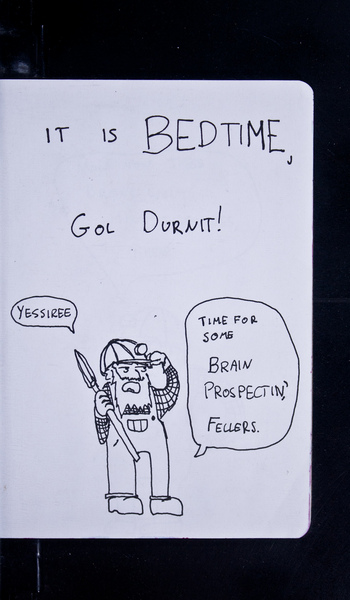 IT IS BEDTIME,
GOL DURNIT!
YESSIREE
TIME FOR
SOME
BRAIN
PROSPECTIN',
FELLERS.